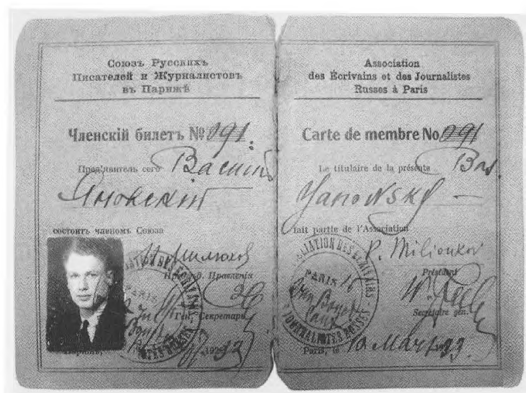 Союзъ Русскихъ
Писателей и Журналистовъ
въ Парижѣ
Членскій билетъ № 091.
Пред'явитель сего Василій
Яновскій
состоитъ членомъ Союза
П. Милюков
Предсѣд. Правленія
Ген. Секретарь
Association
des Écrivains et des Journalistes
Russes à Paris
Carte de membre No 091
Le titulaire de la présente Bas.
Yanowsky
fait partie de l'Association
P. Milioukov
Président
Secrétaire gén.
Paris, le 10 Mars 33